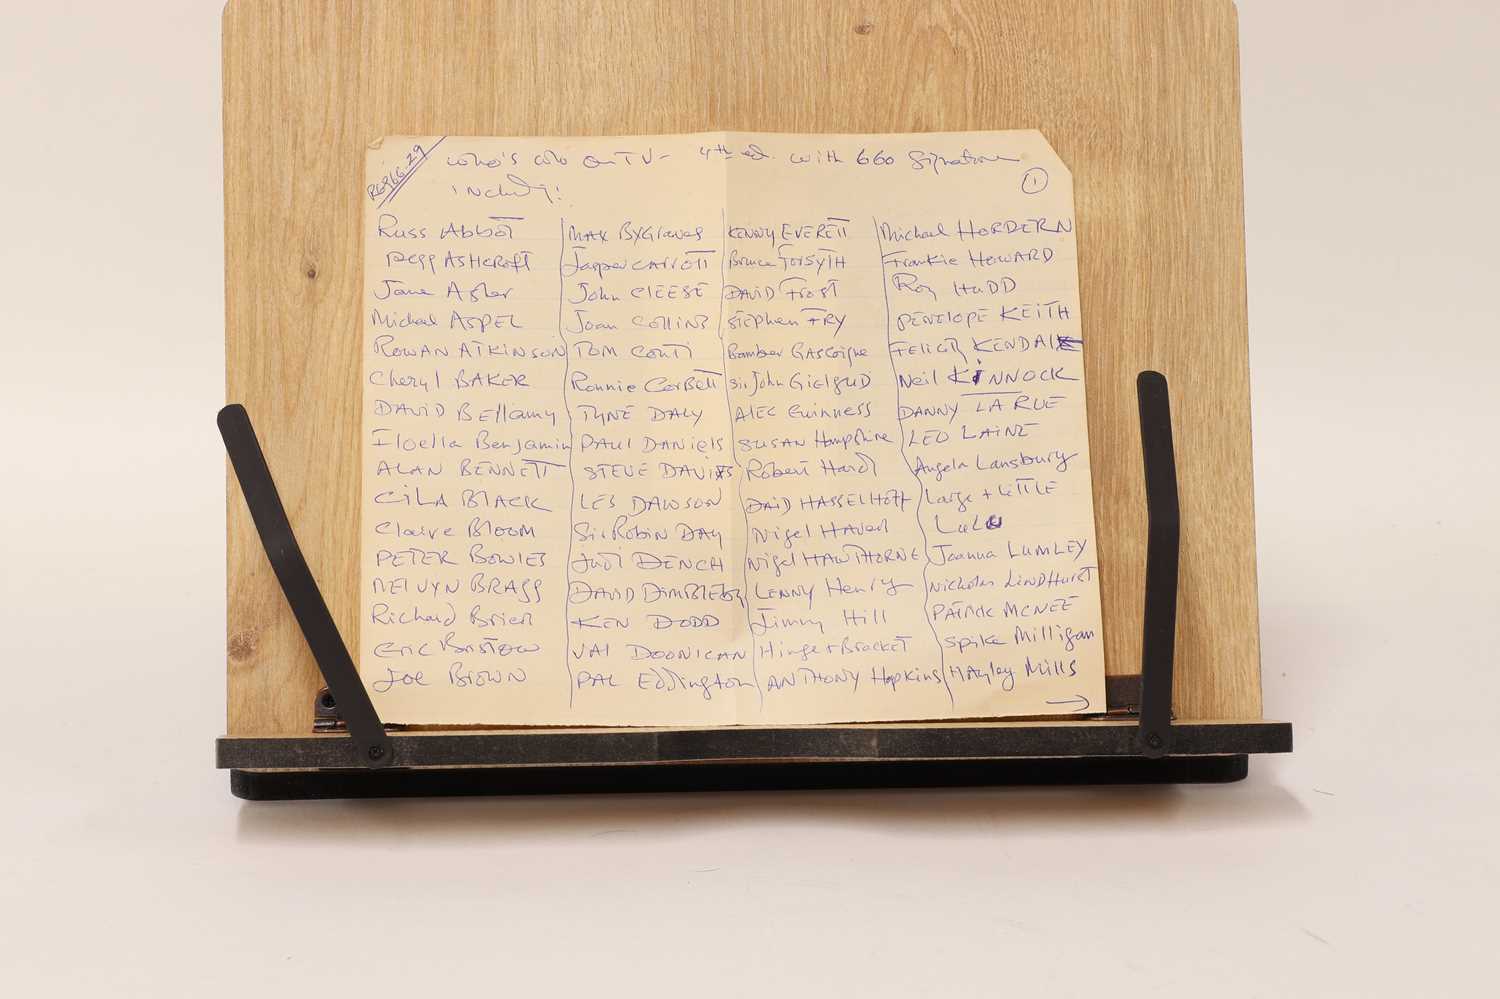 RG966.29
Who's who on TV - 4th ed. with 660 Signature
includy:
1
Russ Abbot
Pegg ASHCROFT
Jane Asher
Michael ASPEL
ROWAN ATKINSON
Cheryl BAKER
DAVID Bellamy
Floella Benjamin
ALAN BENNETT
CILA BLACK
Claire BLOOM
PETER BOWLES
MELVYN BRAGG
Richard Brier
Eric Bristow
JOE BROWN
MAX BYGraves
Jasper CARROTT
John CLEESE
Joan COLLINS
TOM CONTI
Ronnie Corbett
TYNE DALY
PAUL DANiels
STEVE DAVIS
LES DAWSON
Sir Robin DAY
Judi DENCH
DAVID DIMBLEBY
KEN DODD
VAL DOONICAN
PAL Eddington
KENNY EVERETT
Bruce FORSYTH
DAVID FROST
STEPHEN FRY
Bamber GASCOIgne
Sir John GIELGUD
ALEC GUINNESS
SUSAN Hampshire
Robert Hardy
DAID HASSELHOFF
Nigel HAVERS
Nigel HAWTHORNE
LENNY Henry
Jimmy Hill
Hinge + Bracket
ANTHONY Hopkins
Michael HORDERN
Frankie HOWARD
Roy HUDD
PENELOPE KEITH
FELICITY KENDAL
Neil KINNOCK
DANNY LA RUE
LEO LAINE
Angela Lansbury
Large + LITTLE
LuLu
Joanna LUMLEY
Nicholas LINDHURST
PATRICK MCNEE
Spike Milligan
HAyley Mills